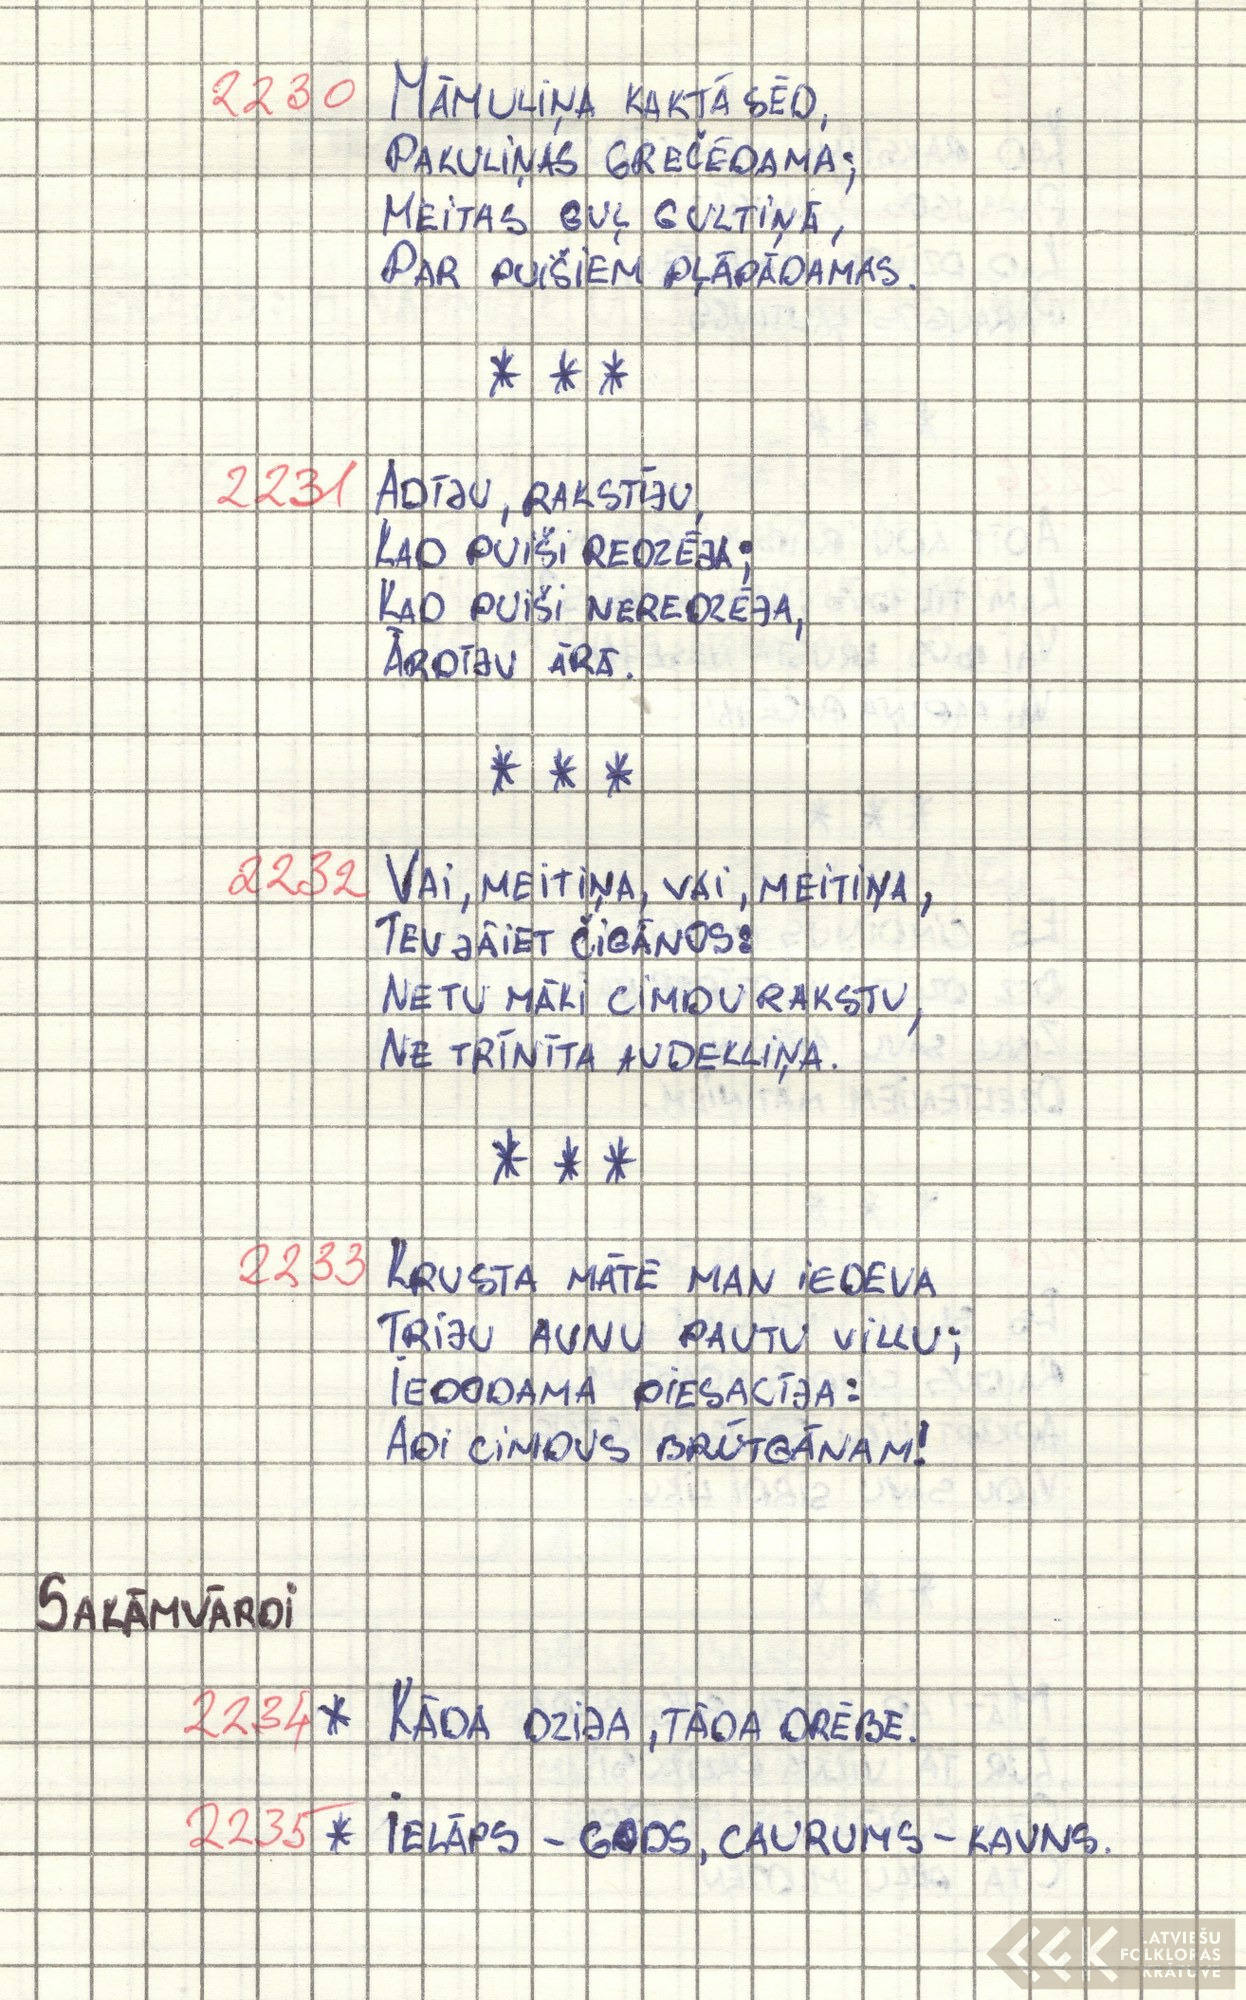 2230 Māmuliņa kaktā sēd,
Pakuliņas grečēdama;
Meitas guļ gultiņā,
Par puišiem pļāpādamas.
* * *
2231 Adīju, rakstīju,
Kad puiši redzēja;
Kad puiši neredzēja,
Ārdīju ārā.
* * *
2232 Vai, meitiņa, vai, meitiņa,
Tev jāiet čigānos:
Ne tu māki cimdu rakstu,
Ne trīnīta audekliņa.
* * *
2233 Krusta māte man iedeva
Triju aunu pautu vilku;
Iedodama piesacīja:
Adi cimdus brūtgānam!
Sakāmvārdi
2234 * Kāda dzija, tāda drēbe.
2235 * Ielāps – gods, caurums – kauns.
LATVIEŠU
FOLKLORAS
KRĀTUVE